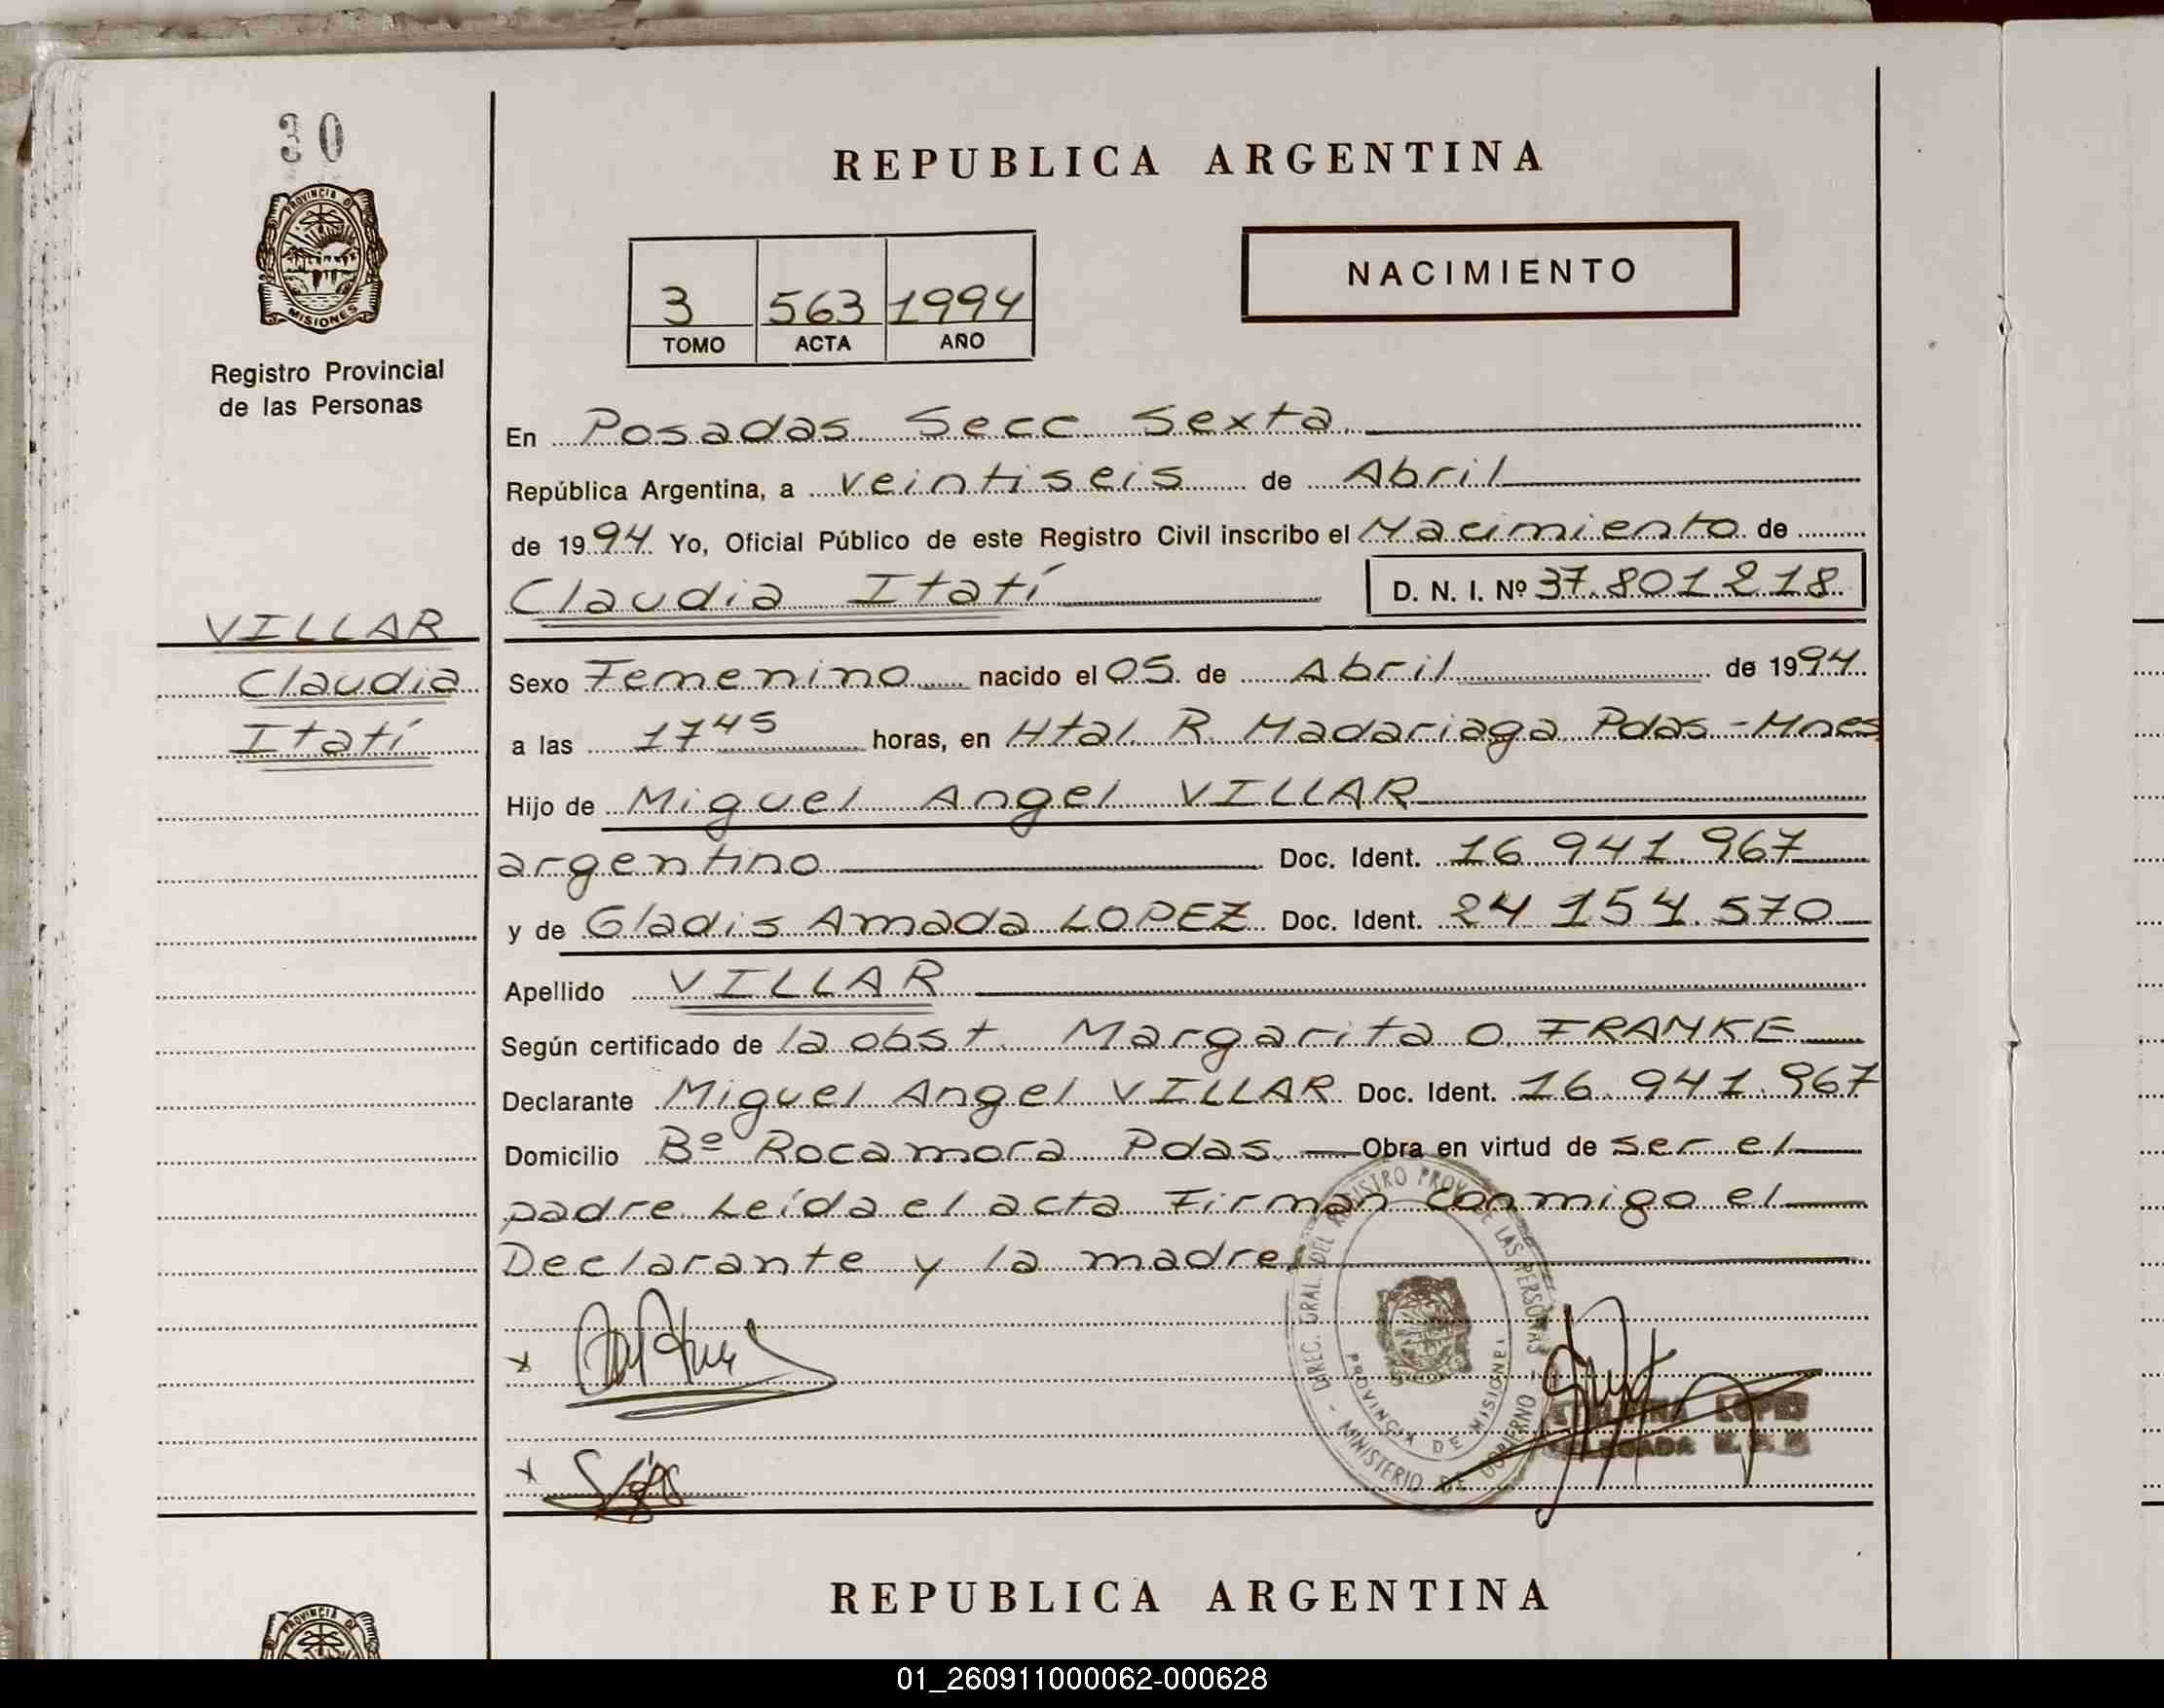 30
PROVINCIA DE
MISIONES
Registro Provincial
de las Personas
VILLAR
Claudia
Itatí
REPUBLICA ARGENTINA
3 563 1994
TOMO ACTA AÑO
NACIMIENTO
En Posadas Secc Sexta
República Argentina, a veintiseis de Abril
de 1994 Yo, Oficial Público de este Registro Civil inscribo el Nacimiento de
Claudia Itatí D. N. I. Nº 37.801.218
Sexo Femenino nacido el 05 de Abril de 1994
a las 17 45 horas, en Htal. R. Madariaga Pdas-Mnes
Hijo de Miguel Angel VILLAR
argentino Doc. Ident. 16.941.967
y de Gladis Amada LOPEZ Doc. Ident. 24 154.570
Apellido VILLAR
Según certificado de la obst. Margarita O. FRANKE
Declarante Miguel Angel VILLAR Doc. Ident. 16.941.967
Domicilio Bº Rocamora Pdas. Obra en virtud de ser el
padre. Leída el acta Firman conmigo el
Declarante y la madre.
DIREC. GRAL. DEL REGISTRO PROV. DE LAS PERSONAS
PROVINCIA DE MISIONES
MINISTERIO DE GOBIERNO
LOPEZ
REPUBLICA ARGENTINA
PROVINCIA
01_260911000062-000628